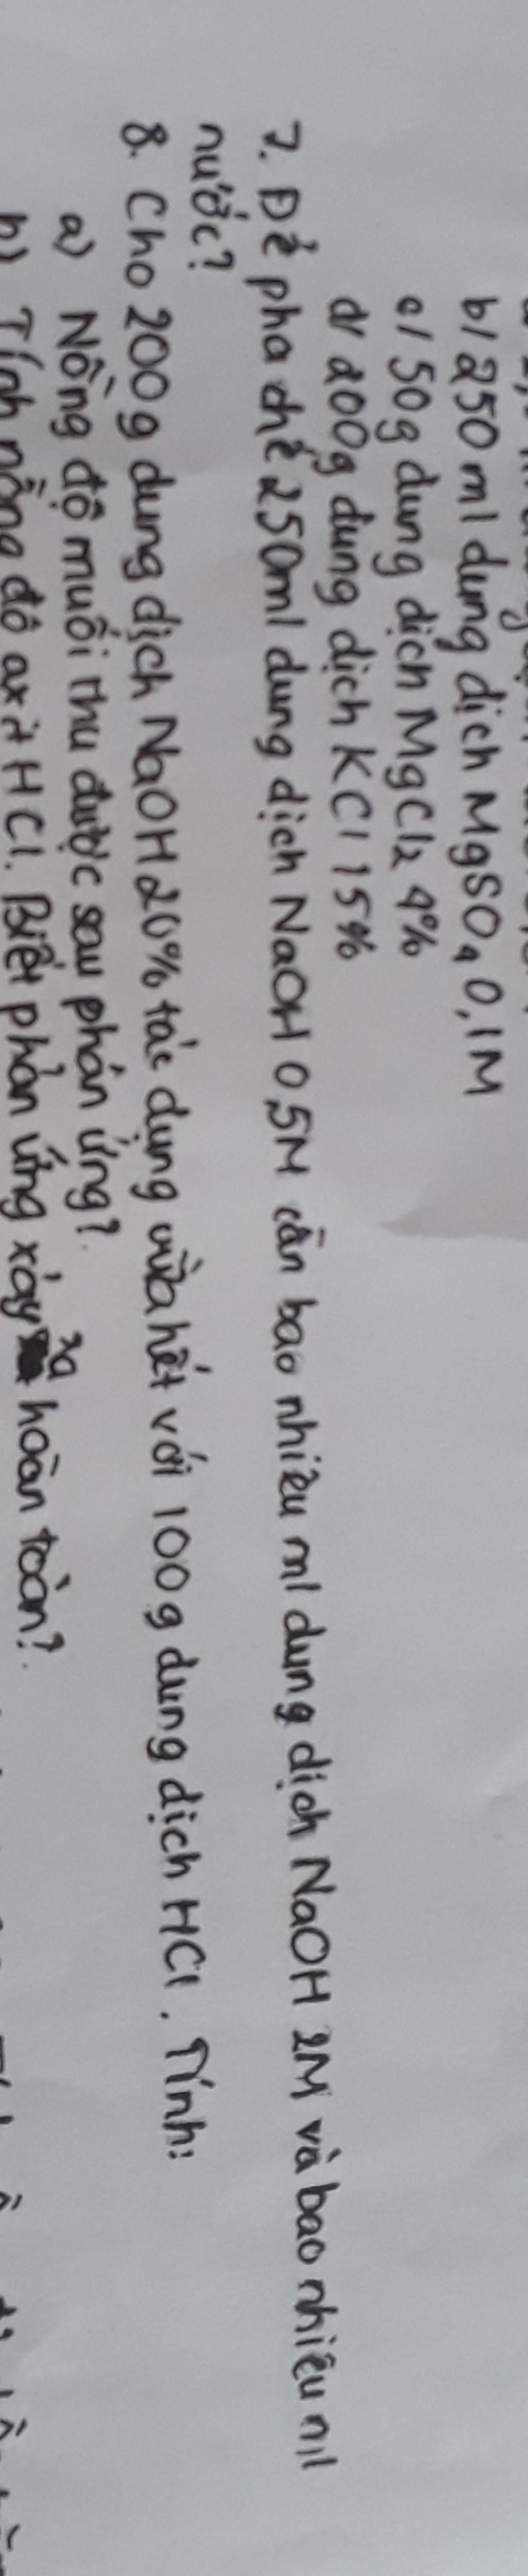 b/ 250 ml dung dịch MgSO4 0,1M
c/ 50g dung dịch MgCl2 4%
d/ 200g dung dịch KCl 15%
7. Để pha chế 250ml dung dịch NaOH 0,5M cần bao nhiêu ml dung dịch NaOH 2M và bao nhiêu ml
nước?
8. Cho 200g dung dịch NaOH 20% tác dụng vừa hết với 100g dung dịch HCl. Tính:
a) Nồng độ muối thu được sau phản ứng?
b) Tính nồng độ axit HCl. Biết phản ứng xảy ra hoàn toàn?